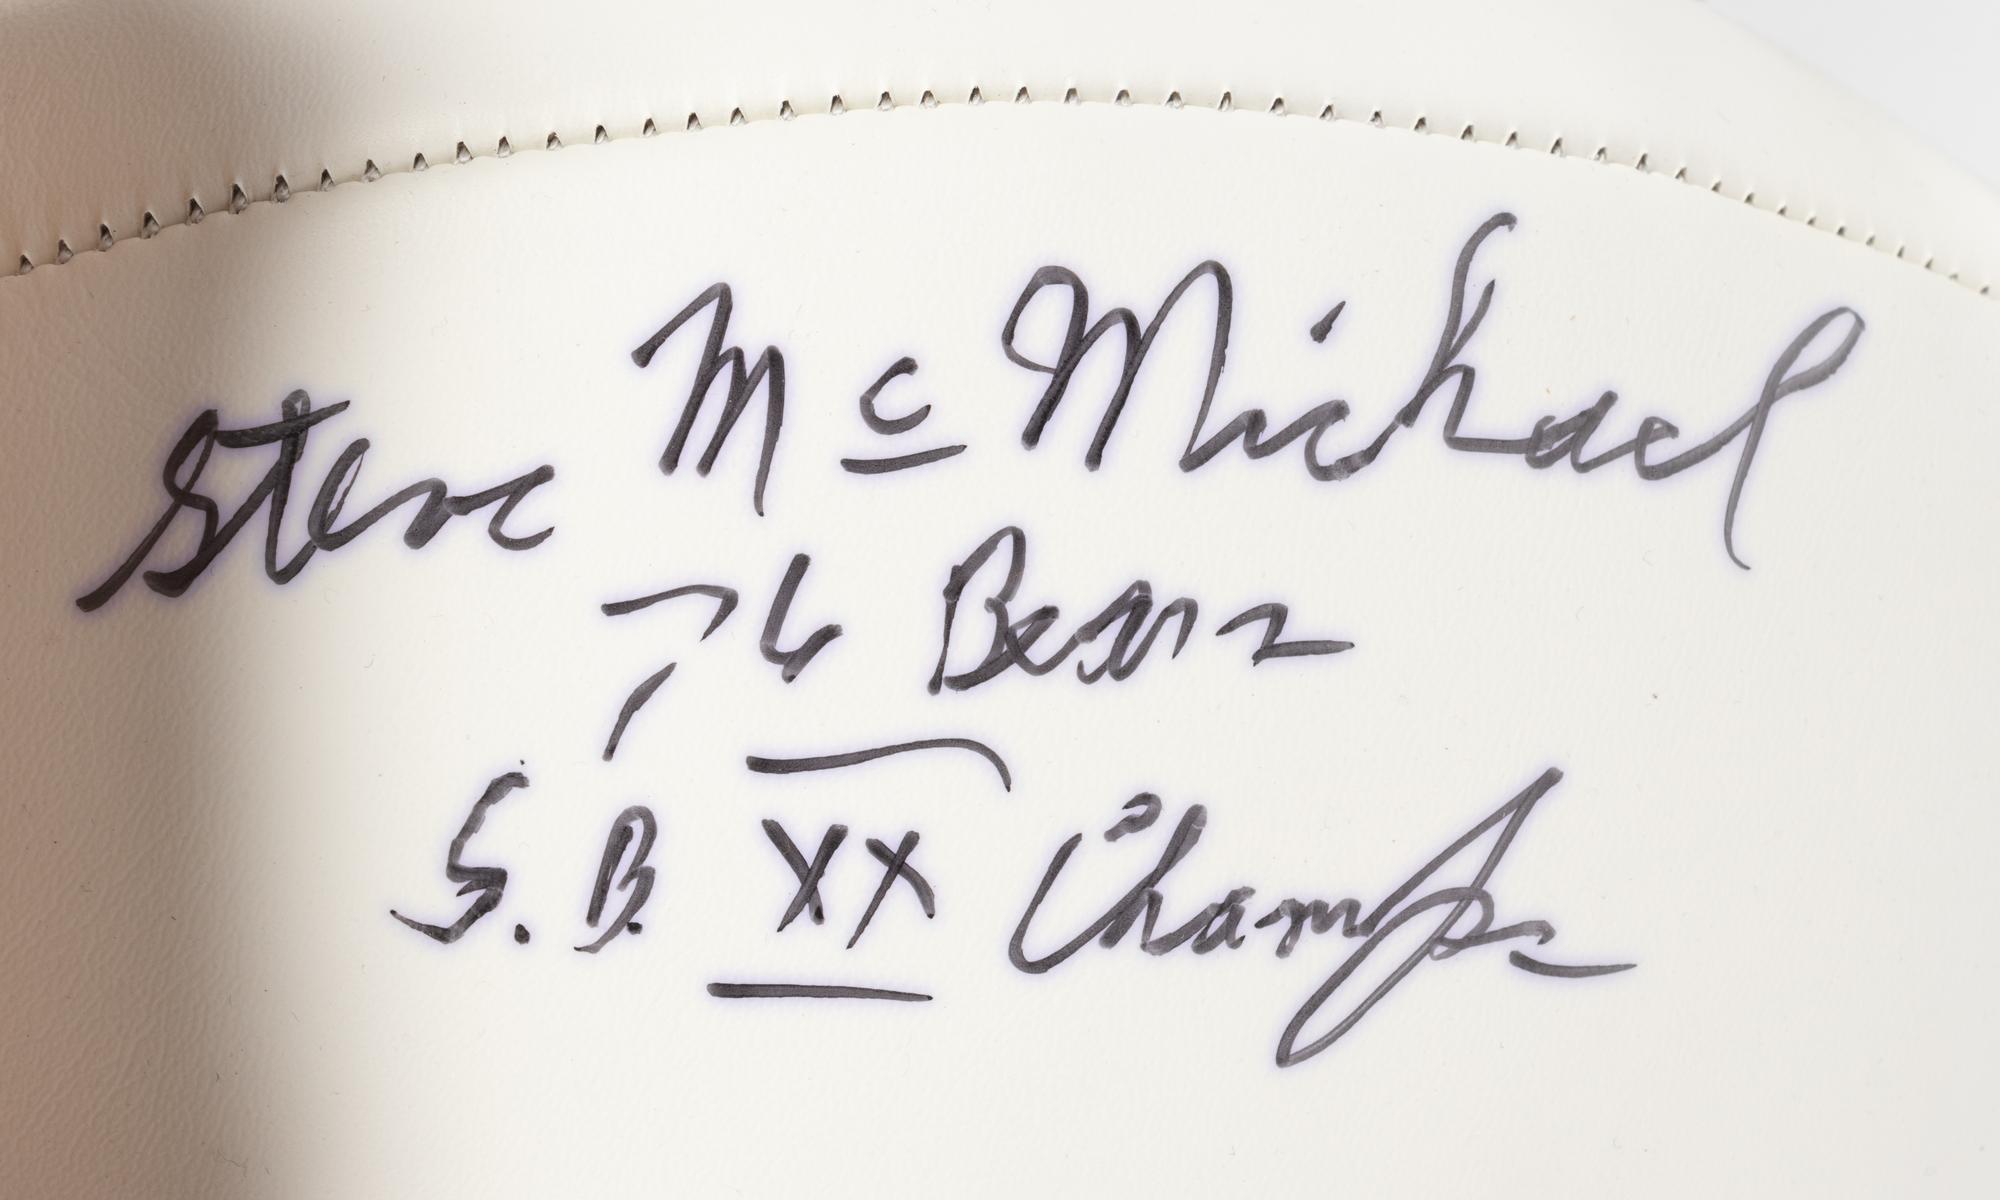 Steve McMichael
76 Bears
S.B. XX Champs